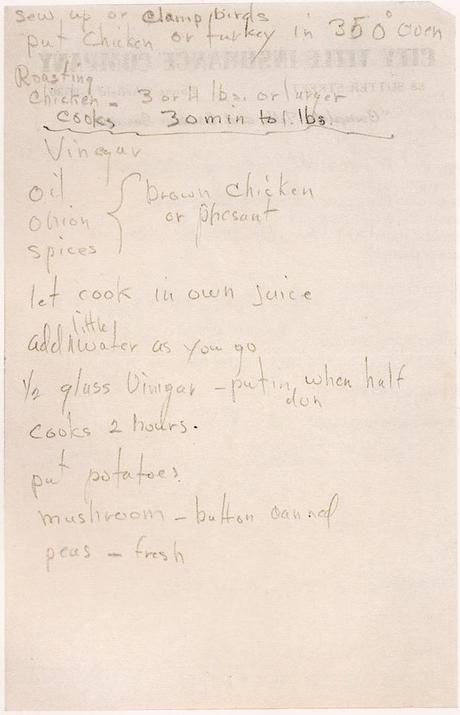 sew up or clamp birds
put Chicken or turkey in 350° oven
Roasting
Chicken - 3 or 4 lbs. or larger
cooks 30 min to 1. lbs
Vinegar
oil
onion
spices
brown chicken
or phesant
let cook in own juice
little
add water as you go
1/2 glass Vinigar - put in when half
dun
cooks 2 hours.
put potatoes
mushroom - button canned
peas - fresh
CITY TITLE INSURANCE COMPANY